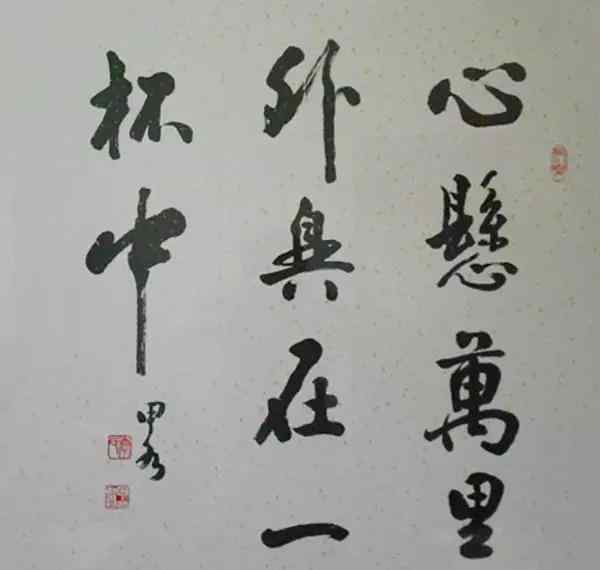 心懸萬里
外興在一
杯中